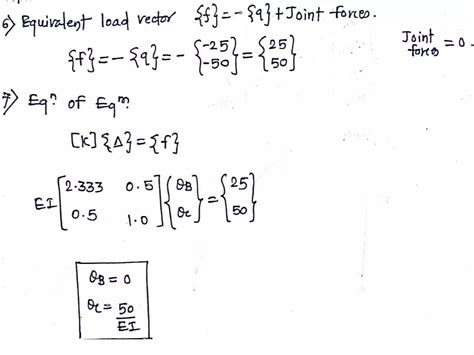 6) Equivalent load vector {f} = - {q} + Joint forces.
{f} = - {q} = - {-25 -50} = {25 50}
Joint forces = 0.
7) Eqn of Eqm
[K] {Δ} = {f}
EI [2.333 0.5 0.5 1.0] {θB θc} = {25 50}
θB = 0
θc = 50/EI